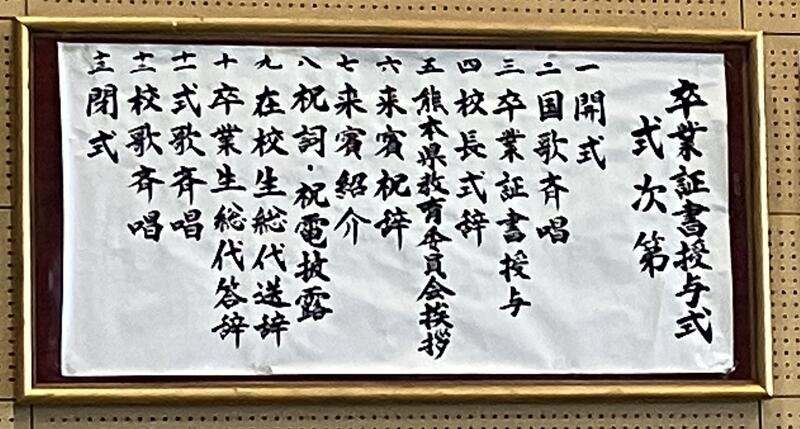 卒業証書授与式
式次第
一 開式
二 国歌斉唱
三 卒業証書授与
四 校長式辞
五 熊本県教育委員会挨拶
六 来賓祝辞
七 来賓紹介
八 祝詞・祝電披露
九 在校生総代送辞
十 卒業生総代答辞
十一 式歌斉唱
十二 校歌斉唱
十三 閉式